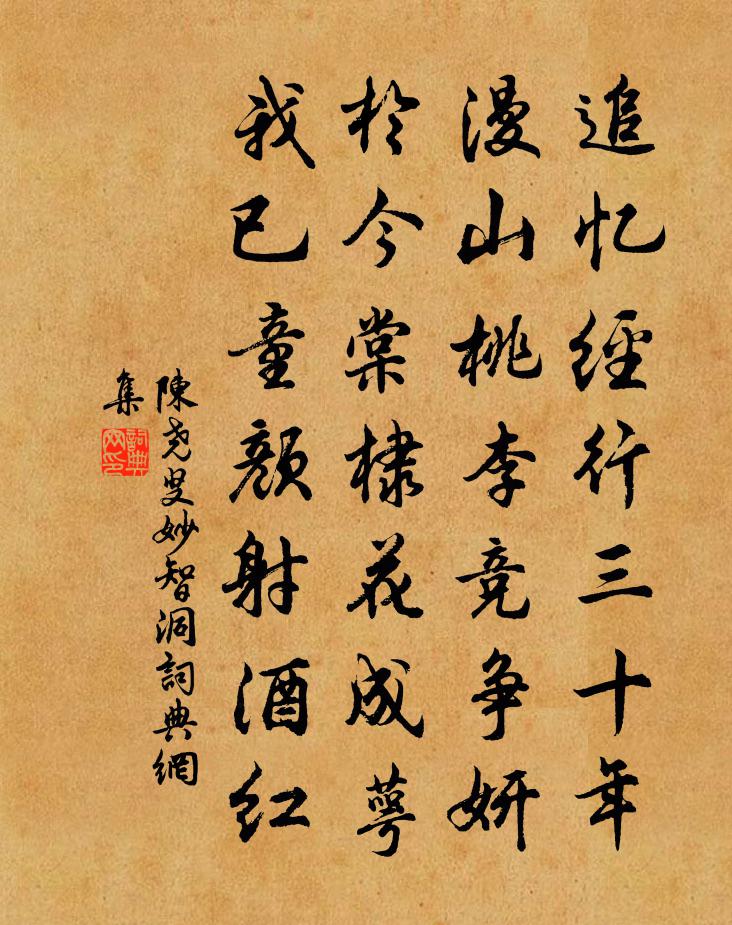 追忆經行三十年
漫山桃李竞争妍
於今棠棣花成萼
我已童颜射酒红
陳尧叟妙智洞詞典網
集
詞典
网印